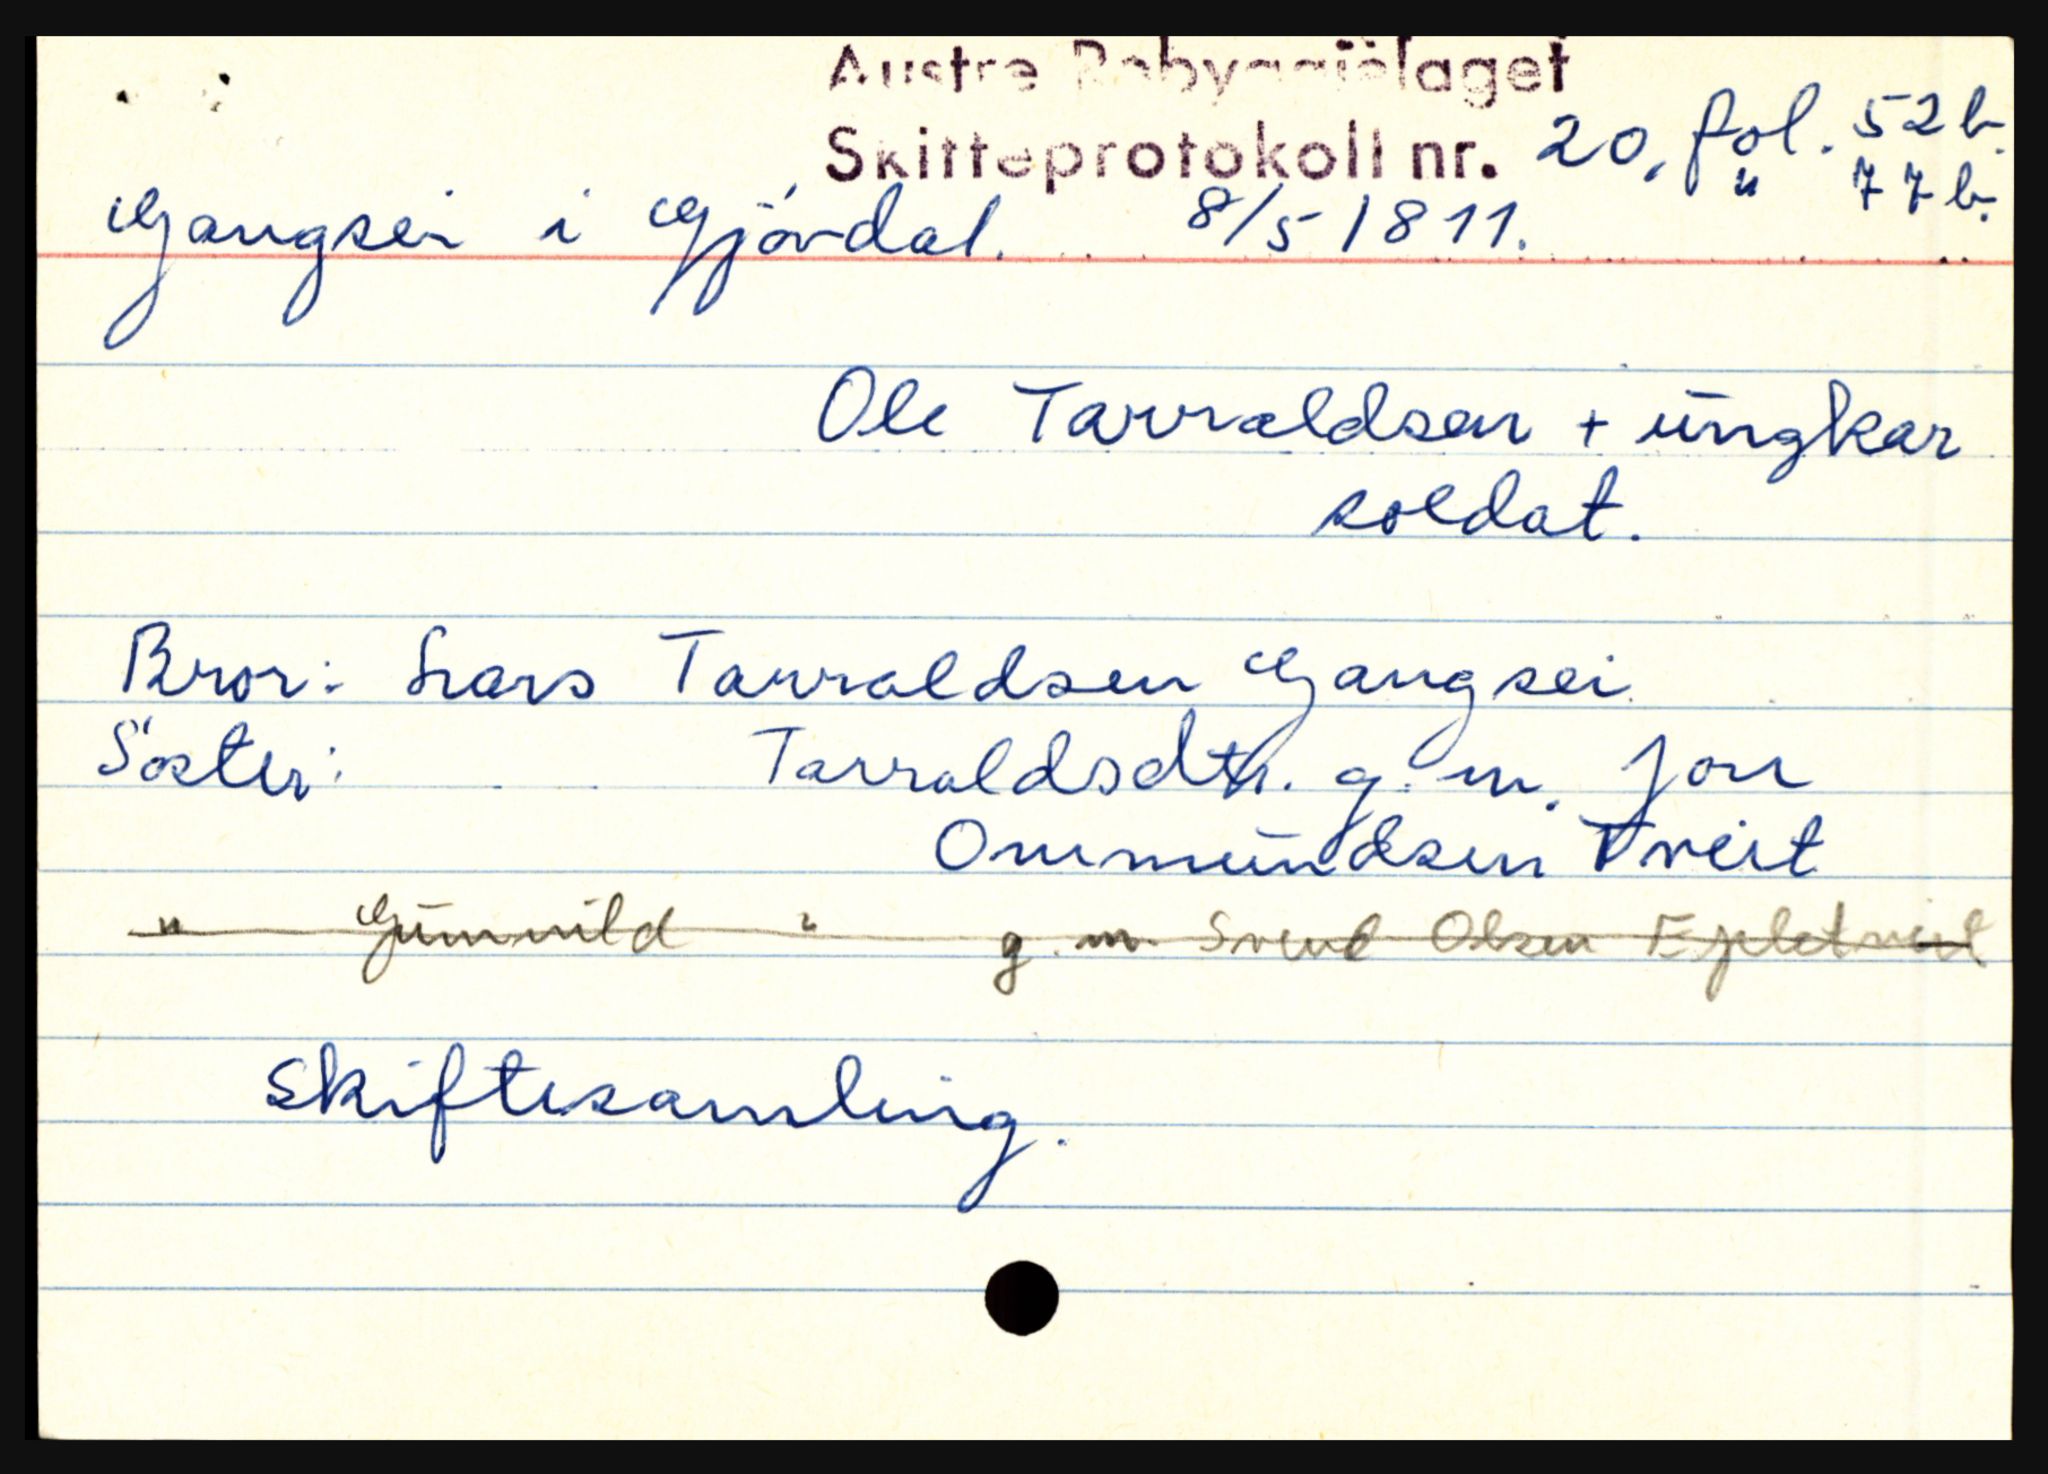 Austre Robyggjelaget
Skifteprotokoll nr. 20, fol. 52b.
" 77b.
Gangsei i Gjövdal. 8/5 1811.
Ole Tarraldsen + ungkar
soldat.
Bror: Lars Tarraldsen Gangsei
Söster: Tarraldsdtr. g. m. Jon
Ommundsen Tveit
" Gunnild " g. m. Svend Olsen Epletveit
Skiftesamling.